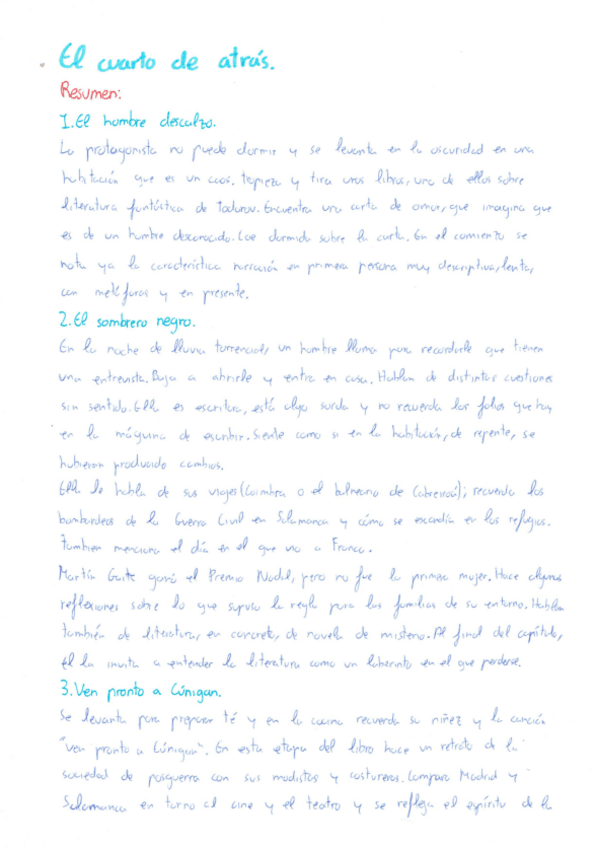 El cuarto de atrás.
Resumen:
1. El hombre descalzo.
La protagonista no puede dormir y se levanta en la oscuridad en una
habitación que es un caos, tropieza y tira unos libros, uno de ellos sobre
literatura fantástica de Todorov. Encuentra una carta de amor, que imagina que
es de un hombre desconocido. Cae dormida sobre la carta. En el comienzo se
nota ya la característica narración en primera persona muy descriptiva, lenta,
con metáforas y en presente.
2. El sombrero negro.
En la noche de lluvia torrencial, un hombre llama para recordarle que tienen
una entrevista. Baja a abrirle y entra en casa. Hablan de distintas cuestiones
sin sentido. Ella es escritora, está algo sorda y no recuerda los folios que hay
en la máquina de escribir. Siente como si en la habitación, de repente, se
hubieran producido cambios.
Ella le habla de sus viajes (Coimbra o el balneario de Cabreiroá); recuerda los
bombardeos de la Guerra Civil en Salamanca y cómo se escondía en los refugios.
También menciona el día en el que vio a Franco.
Martín Gaite ganó el Premio Nadal, pero no fue la primera mujer. Hace algunas
reflexiones sobre lo que supuso la regla para las familias de su entorno. Hablan
también de literatura, en concreto, de novela de misterio. Al final del capítulo,
él la invita a entender la literatura como un laberinto en el que perderse.
3. Ven pronto a Cúnigan.
Se levanta para preparar té y en la cocina recuerda su niñez y la canción
"Ven pronto a Cúnigan". En esta etapa del libro hace un retrato de la
sociedad de posguerra con sus modistas y costureras. Compara Madrid y
Salamanca en torno al cine y el teatro y se refleja el espíritu de la